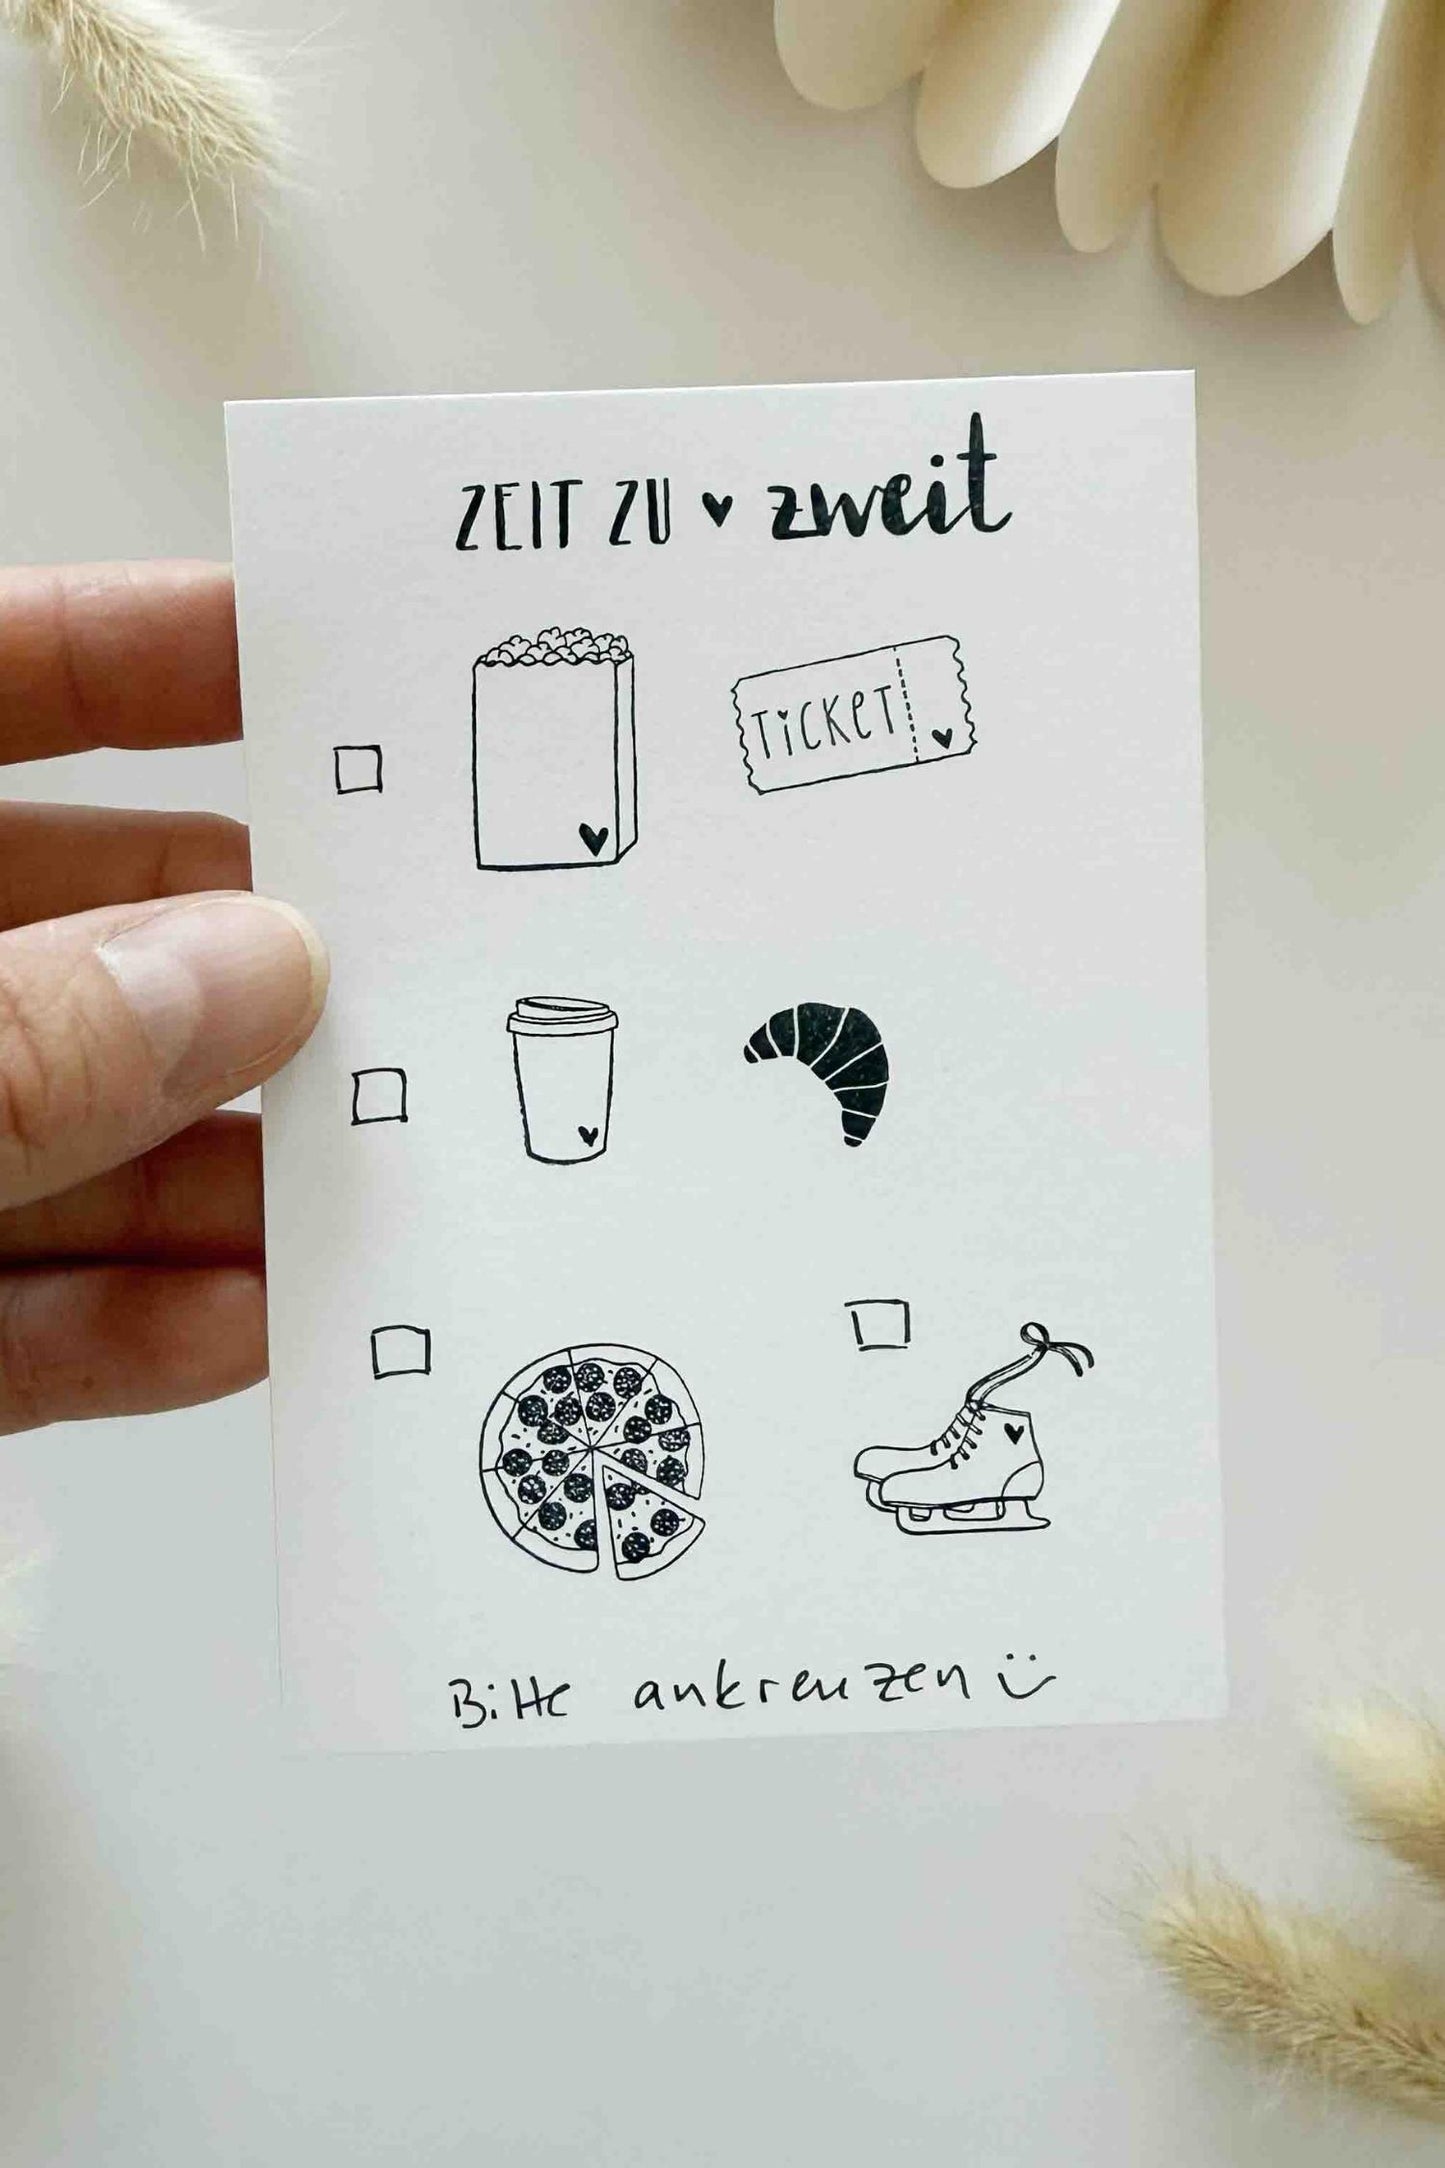 ZEIT ZU ♥ zweit
TiCKET
Bitte ankreuzen :)